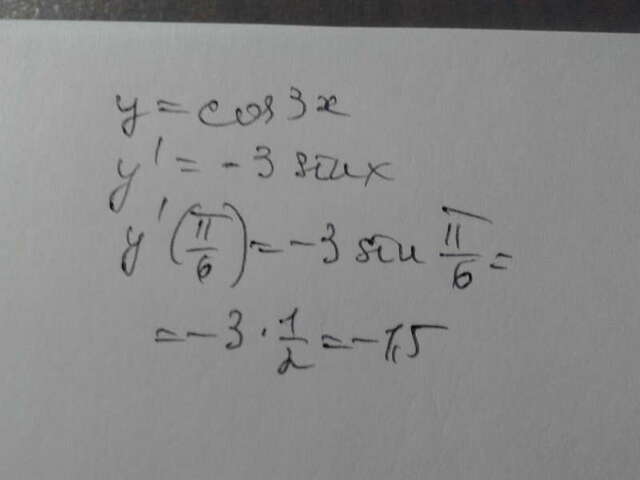 y = cos 3x
y' = -3 sin x
y'(π/6) = -3 sin π/6 =
= -3 · 1/2 = -1,5